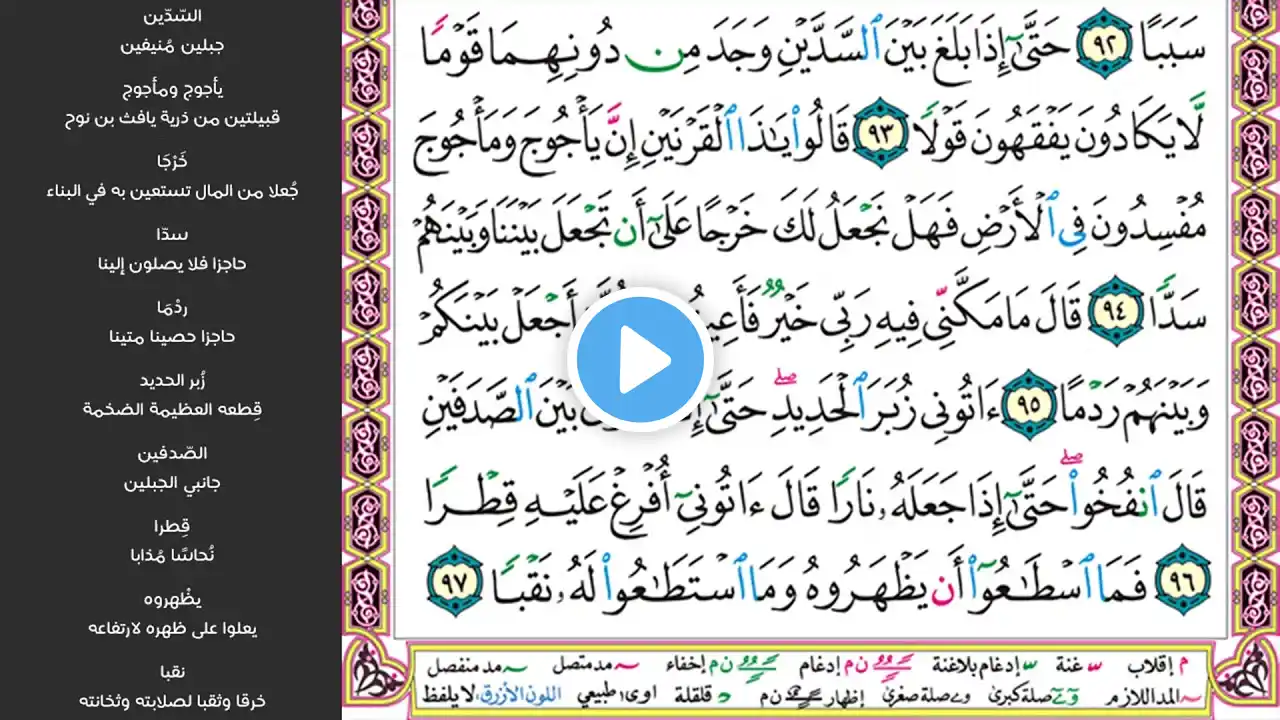 السّدّين
جبلين مُنيفين
يأجوج ومأجوج
قبيلتين من ذرية يافث بن نوح
خَرْجًا
جُعلا من المال تستعين به في البناء
سدّا
حاجزا فلا يصلون إلينا
ردْمًا
حاجزا حصينا متينا
زُبر الحديد
قِطعه العظيمة الضخمة
الصّدفين
جانبي الجبلين
قِطرا
نُحاسًا مُذابا
يظْهروه
يعلوا على ظهره لارتفاعه
نقبا
خرقا وثقبا لصلابته وثخانته
سَبَبًا ٩٢ حَتَّىٰٓ إِذَا بَلَغَ بَيْنَ ٱلسَّدَّيْنِ وَجَدَ مِن دُونِهِمَا قَوْمًا
لَّا يَكَادُونَ يَفْقَهُونَ قَوْلًا ٩٣ قَالُوا۟ يَٰذَا ٱلْقَرْنَيْنِ إِنَّ يَأْجُوجَ وَمَأْجُوجَ
مُفْسِدُونَ فِى ٱلْأَرْضِ فَهَلْ نَجْعَلُ لَكَ خَرْجًا عَلَىٰٓ أَن تَجْعَلَ بَيْنَنَا وَبَيْنَهُمْ
سَدًّا ٩٤ قَالَ مَا مَكَّنِّى فِيهِ رَبِّى خَيْرٌ أَجْعَلْ بَيْنَكُمْ
وَبَيْنَهُمْ رَدْمًا ٩٥ ءَاتُونِى زُبَرَ ٱلْحَدِيدِ ۖ حَتَّىٰٓ بَيْنَ ٱلصَّدَفَيْنِ
قَالَ ٱنفُخُوا۟ ۖ حَتَّىٰٓ إِذَا جَعَلَهُۥ نَارًا قَالَ ءَاتُونِىٓ أُفْرِغْ عَلَيْهِ قِطْرًا
٩٦ فَمَا ٱسْطَٰعُوٓا۟ أَن يَظْهَرُوهُ وَمَا ٱسْتَطَٰعُوا۟ لَهُۥ نَقْبًا ٩٧
م إقلاب غنة إدغام بلاغنة ن م إدغام ن م إخفاء مد متصل مد منفصل
المد اللازم صلة كبرى صلة صغرى إظهار ن م قلقلة اوى طبيعي اللون الأزرق لا يلفظ